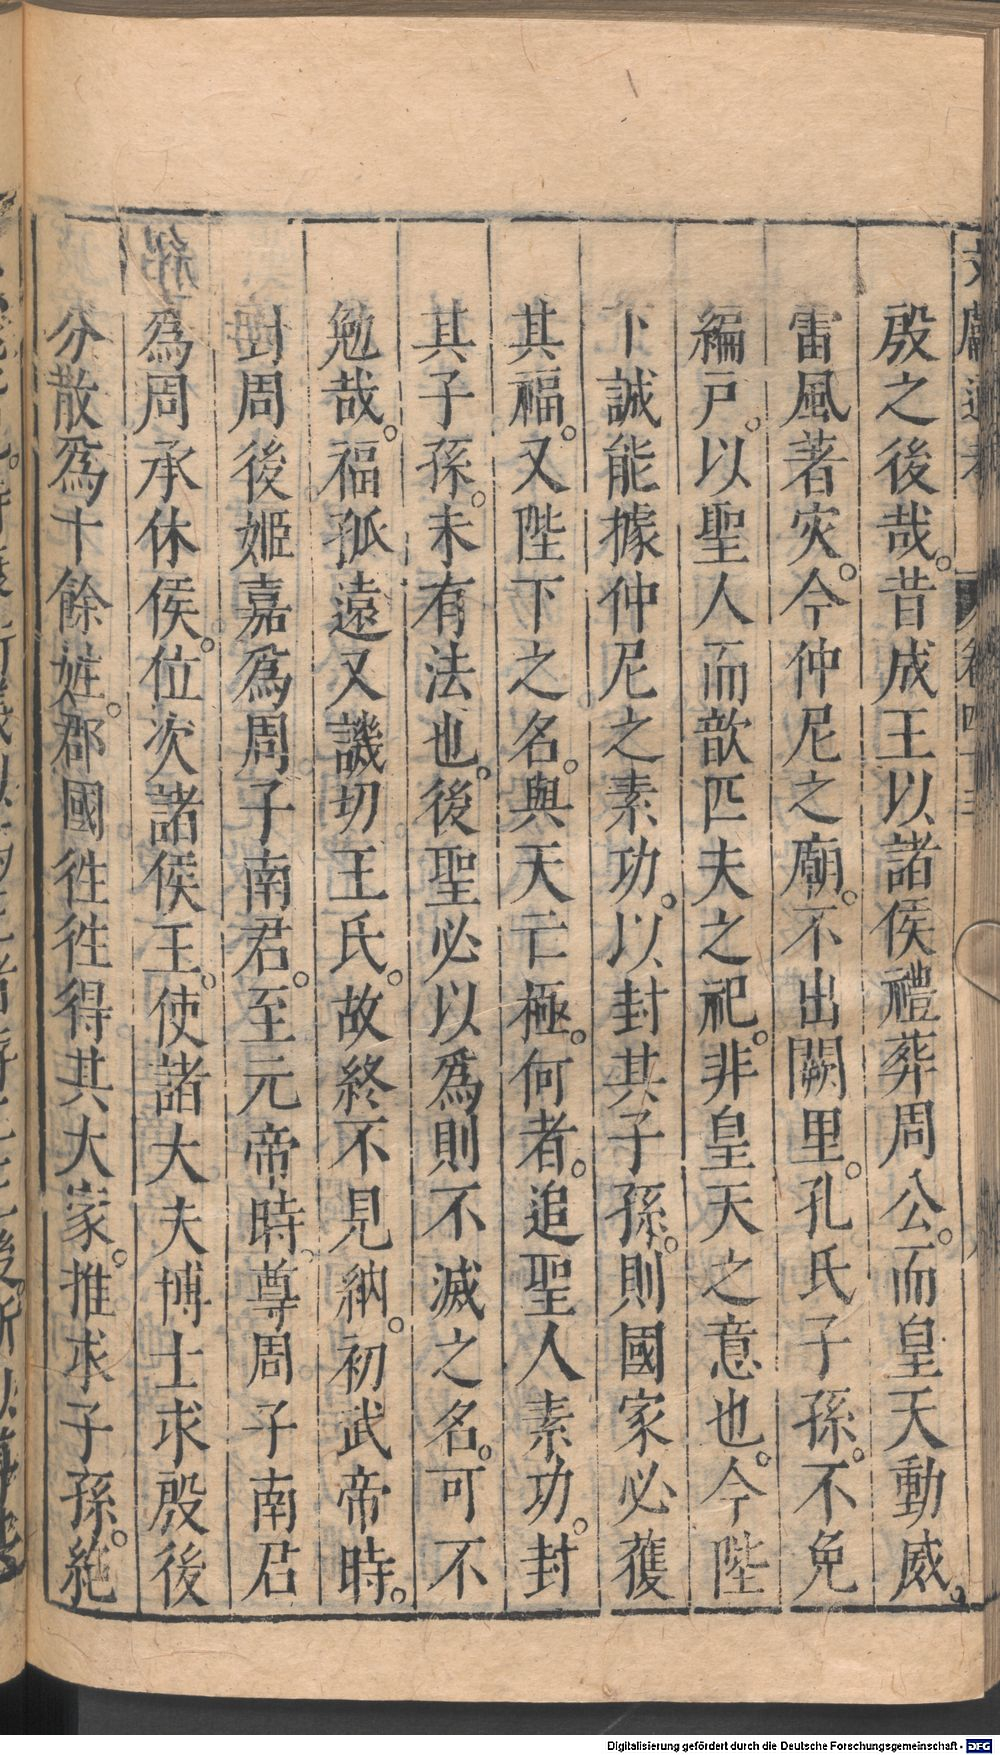 殷之後哉。昔成王以諸侯禮葬周公。而皇天動威。
雷風著灾。今仲尼之廟。不出闕里。孔氏子孫。不免
編戶。以聖人而歆匹夫之祀。非皇天之意也。今陛
下誠能據仲尼之素功。以封其子孫。則國家必獲
其福。又陛下之名。與天亡極。何者。追聖人素功。封
其子孫。未有法也。後聖必以爲則不滅之名。可不
勉哉。福孤遠又譏切王氏。故終不見納。初武帝時。
封周後姬嘉爲周子南君。至元帝時。尊周子南君
爲周承休侯。位次諸侯王。使諸大夫博士求殷後
分散爲十餘姓。郡國徃徃得其大家。推求子孫。絶
Digitalisierung gefördert durch die Deutsche Forschungsgemeinschaft - DFG